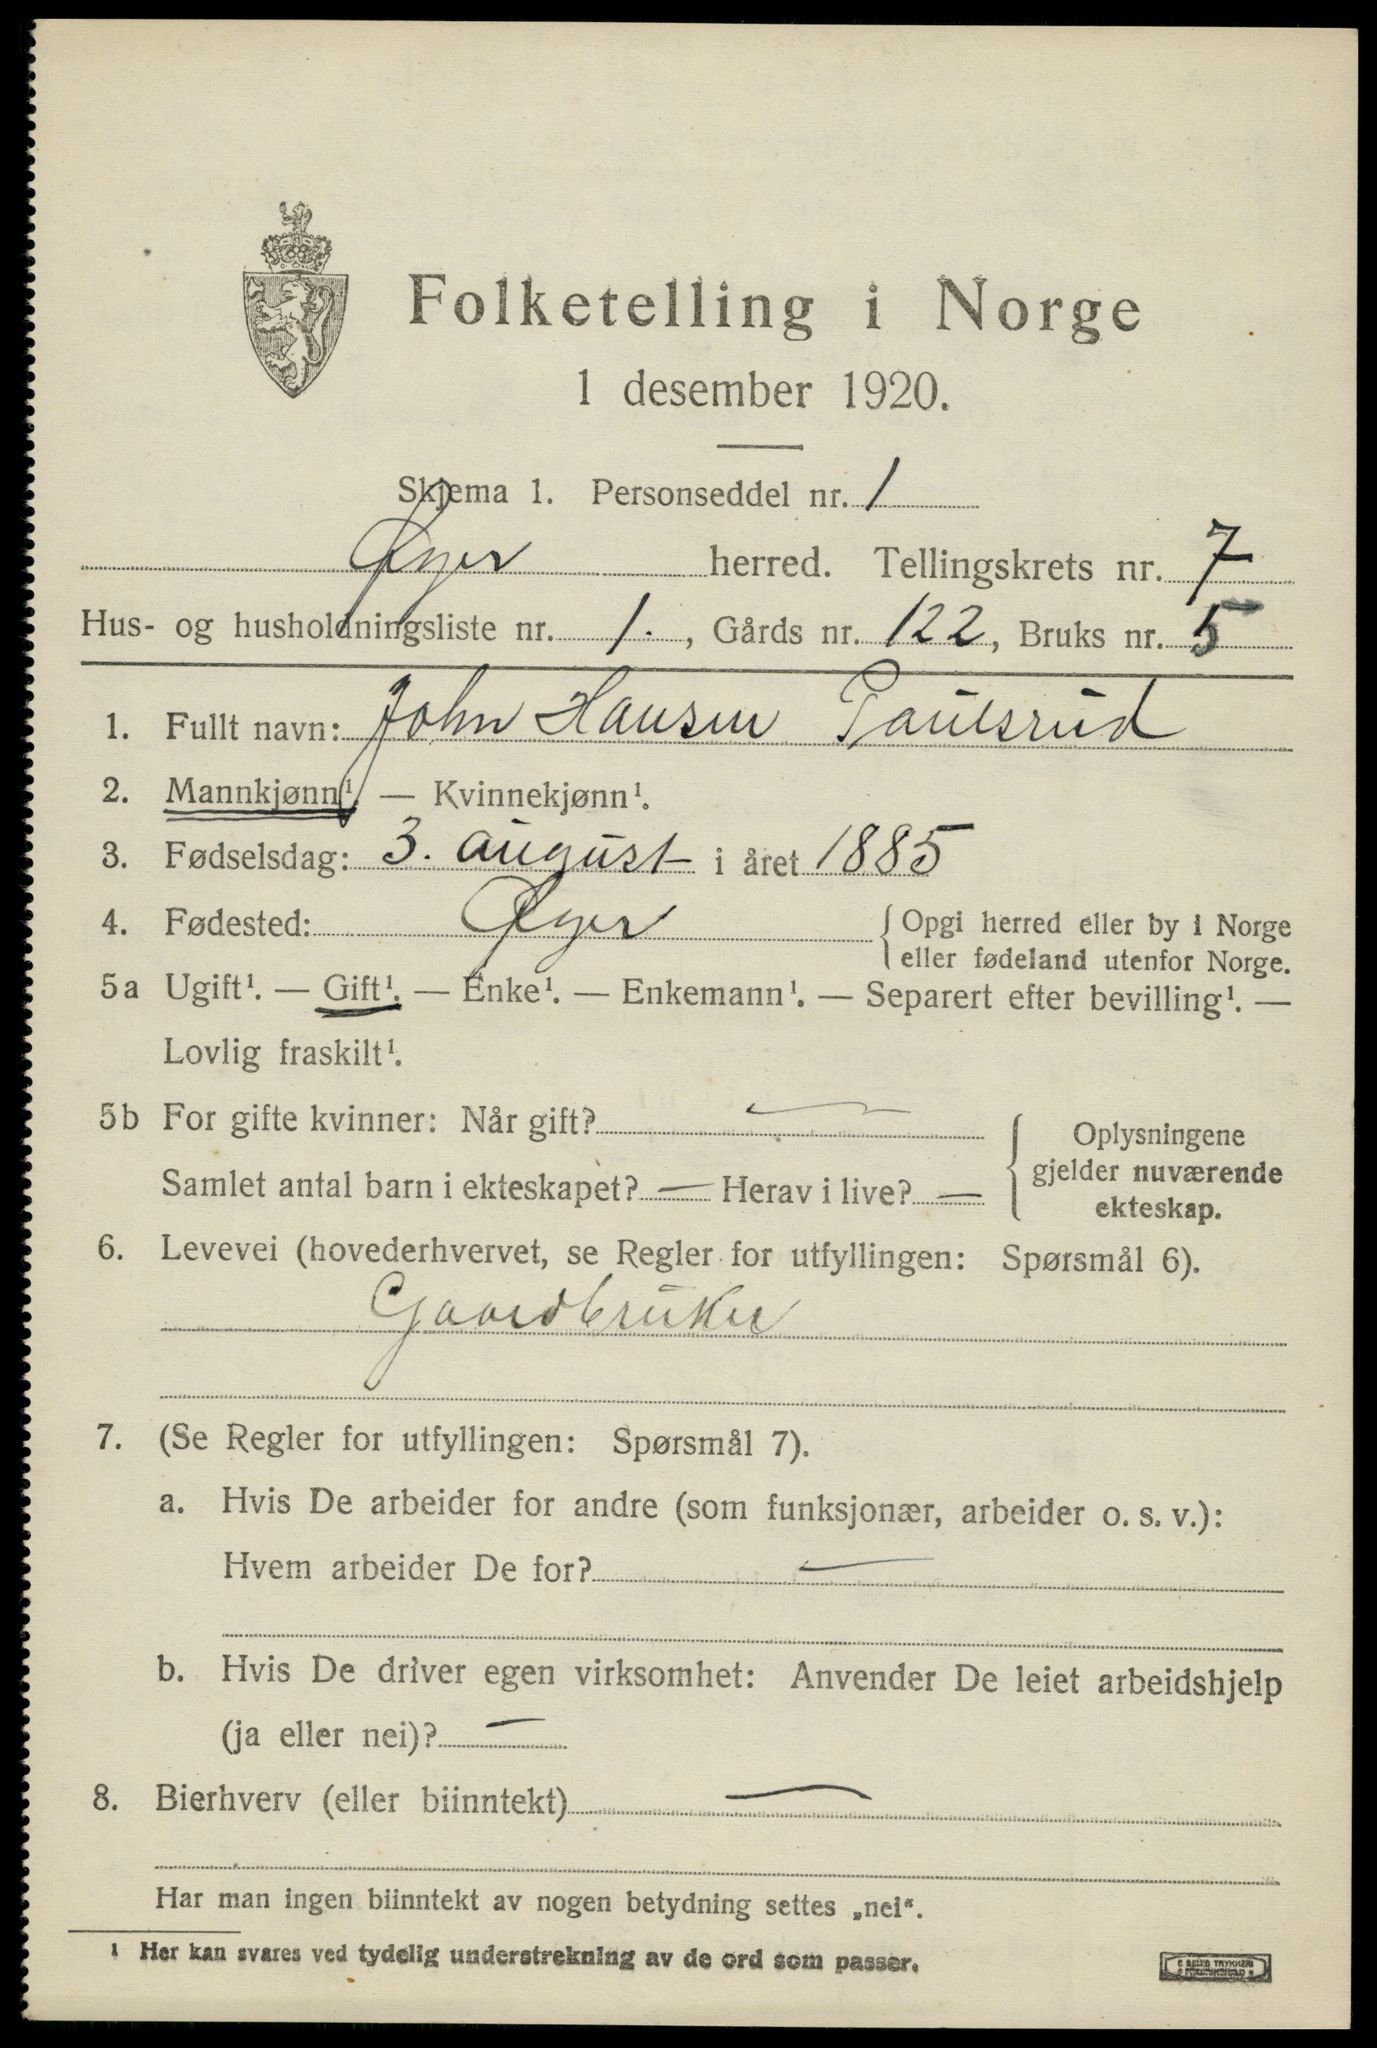 Folketelling i Norge
1 desember 1920.
Skjema 1. Personseddel nr. 1
Øyer herred. Tellingskrets nr. 7
Hus- og husholdningsliste nr. 1., Gårds nr. 122, Bruks nr. 5
1. Fullt navn: John Hansen Paulsrud
2. Mannkjønn¹. — Kvinnekjønn¹.
3. Fødselsdag: 3. august i året 1885
4. Fødested: Øyer { Opgi herred eller by i Norge
eller fødeland utenfor Norge.
5a Ugift¹. — Gift¹. — Enke¹. — Enkemann¹. — Separert efter bevilling¹. —
Lovlig fraskilt¹.
5b For gifte kvinner: Når gift? —
Samlet antal barn i ekteskapet? — Herav i live? —
{ Oplysningene
gjelder nuværende
ekteskap.
6. Levevei (hovederhvervet, se Regler for utfyllingen: Spørsmål 6).
Gaardbruker
7. (Se Regler for utfyllingen: Spørsmål 7).
a. Hvis De arbeider for andre (som funksjonær, arbeider o. s. v.):
Hvem arbeider De for? —
b. Hvis De driver egen virksomhet: Anvender De leiet arbeidshjelp
(ja eller nei)? —
8. Bierhverv (eller biinntekt) —
Har man ingen biinntekt av nogen betydning settes „nei“.
¹ Her kan svares ved tydelig understrekning av de ord som passer.